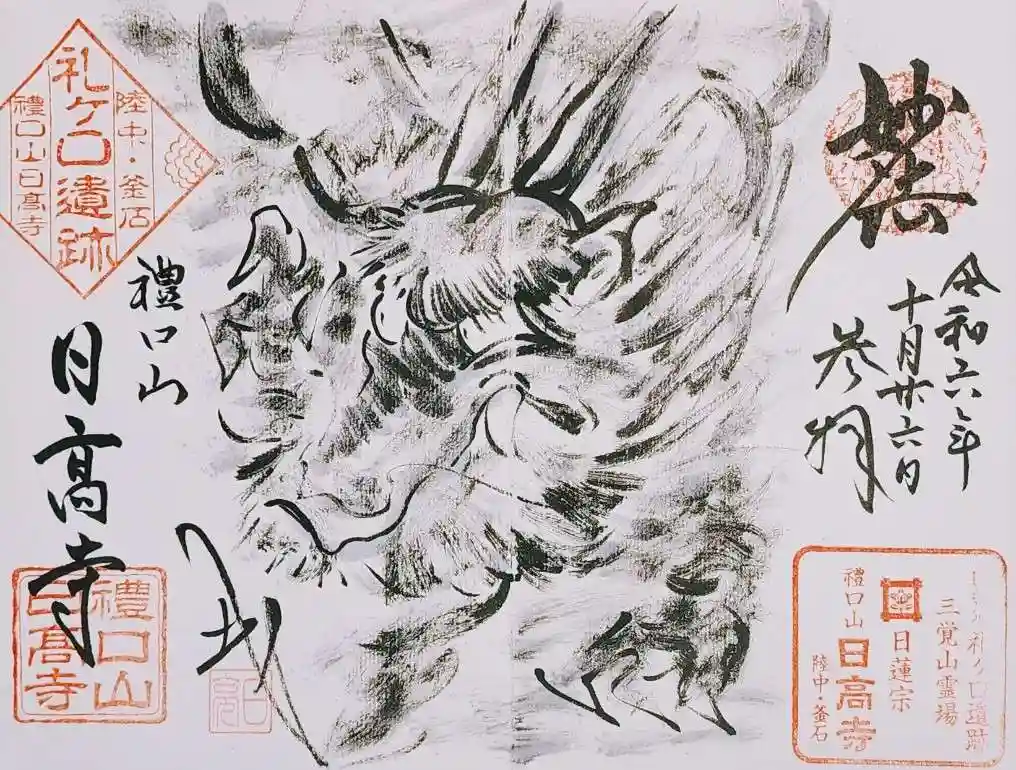 妙法
令和六年
十月廿六日
参拝
礼ヶ口遺跡
三覚山霊場
日蓮宗
禮口山
日高寺
陸中・釜石
陸中・釜石
礼ヶ口遺跡
禮口山日高寺
禮口山
日高寺
禮口山
日高寺